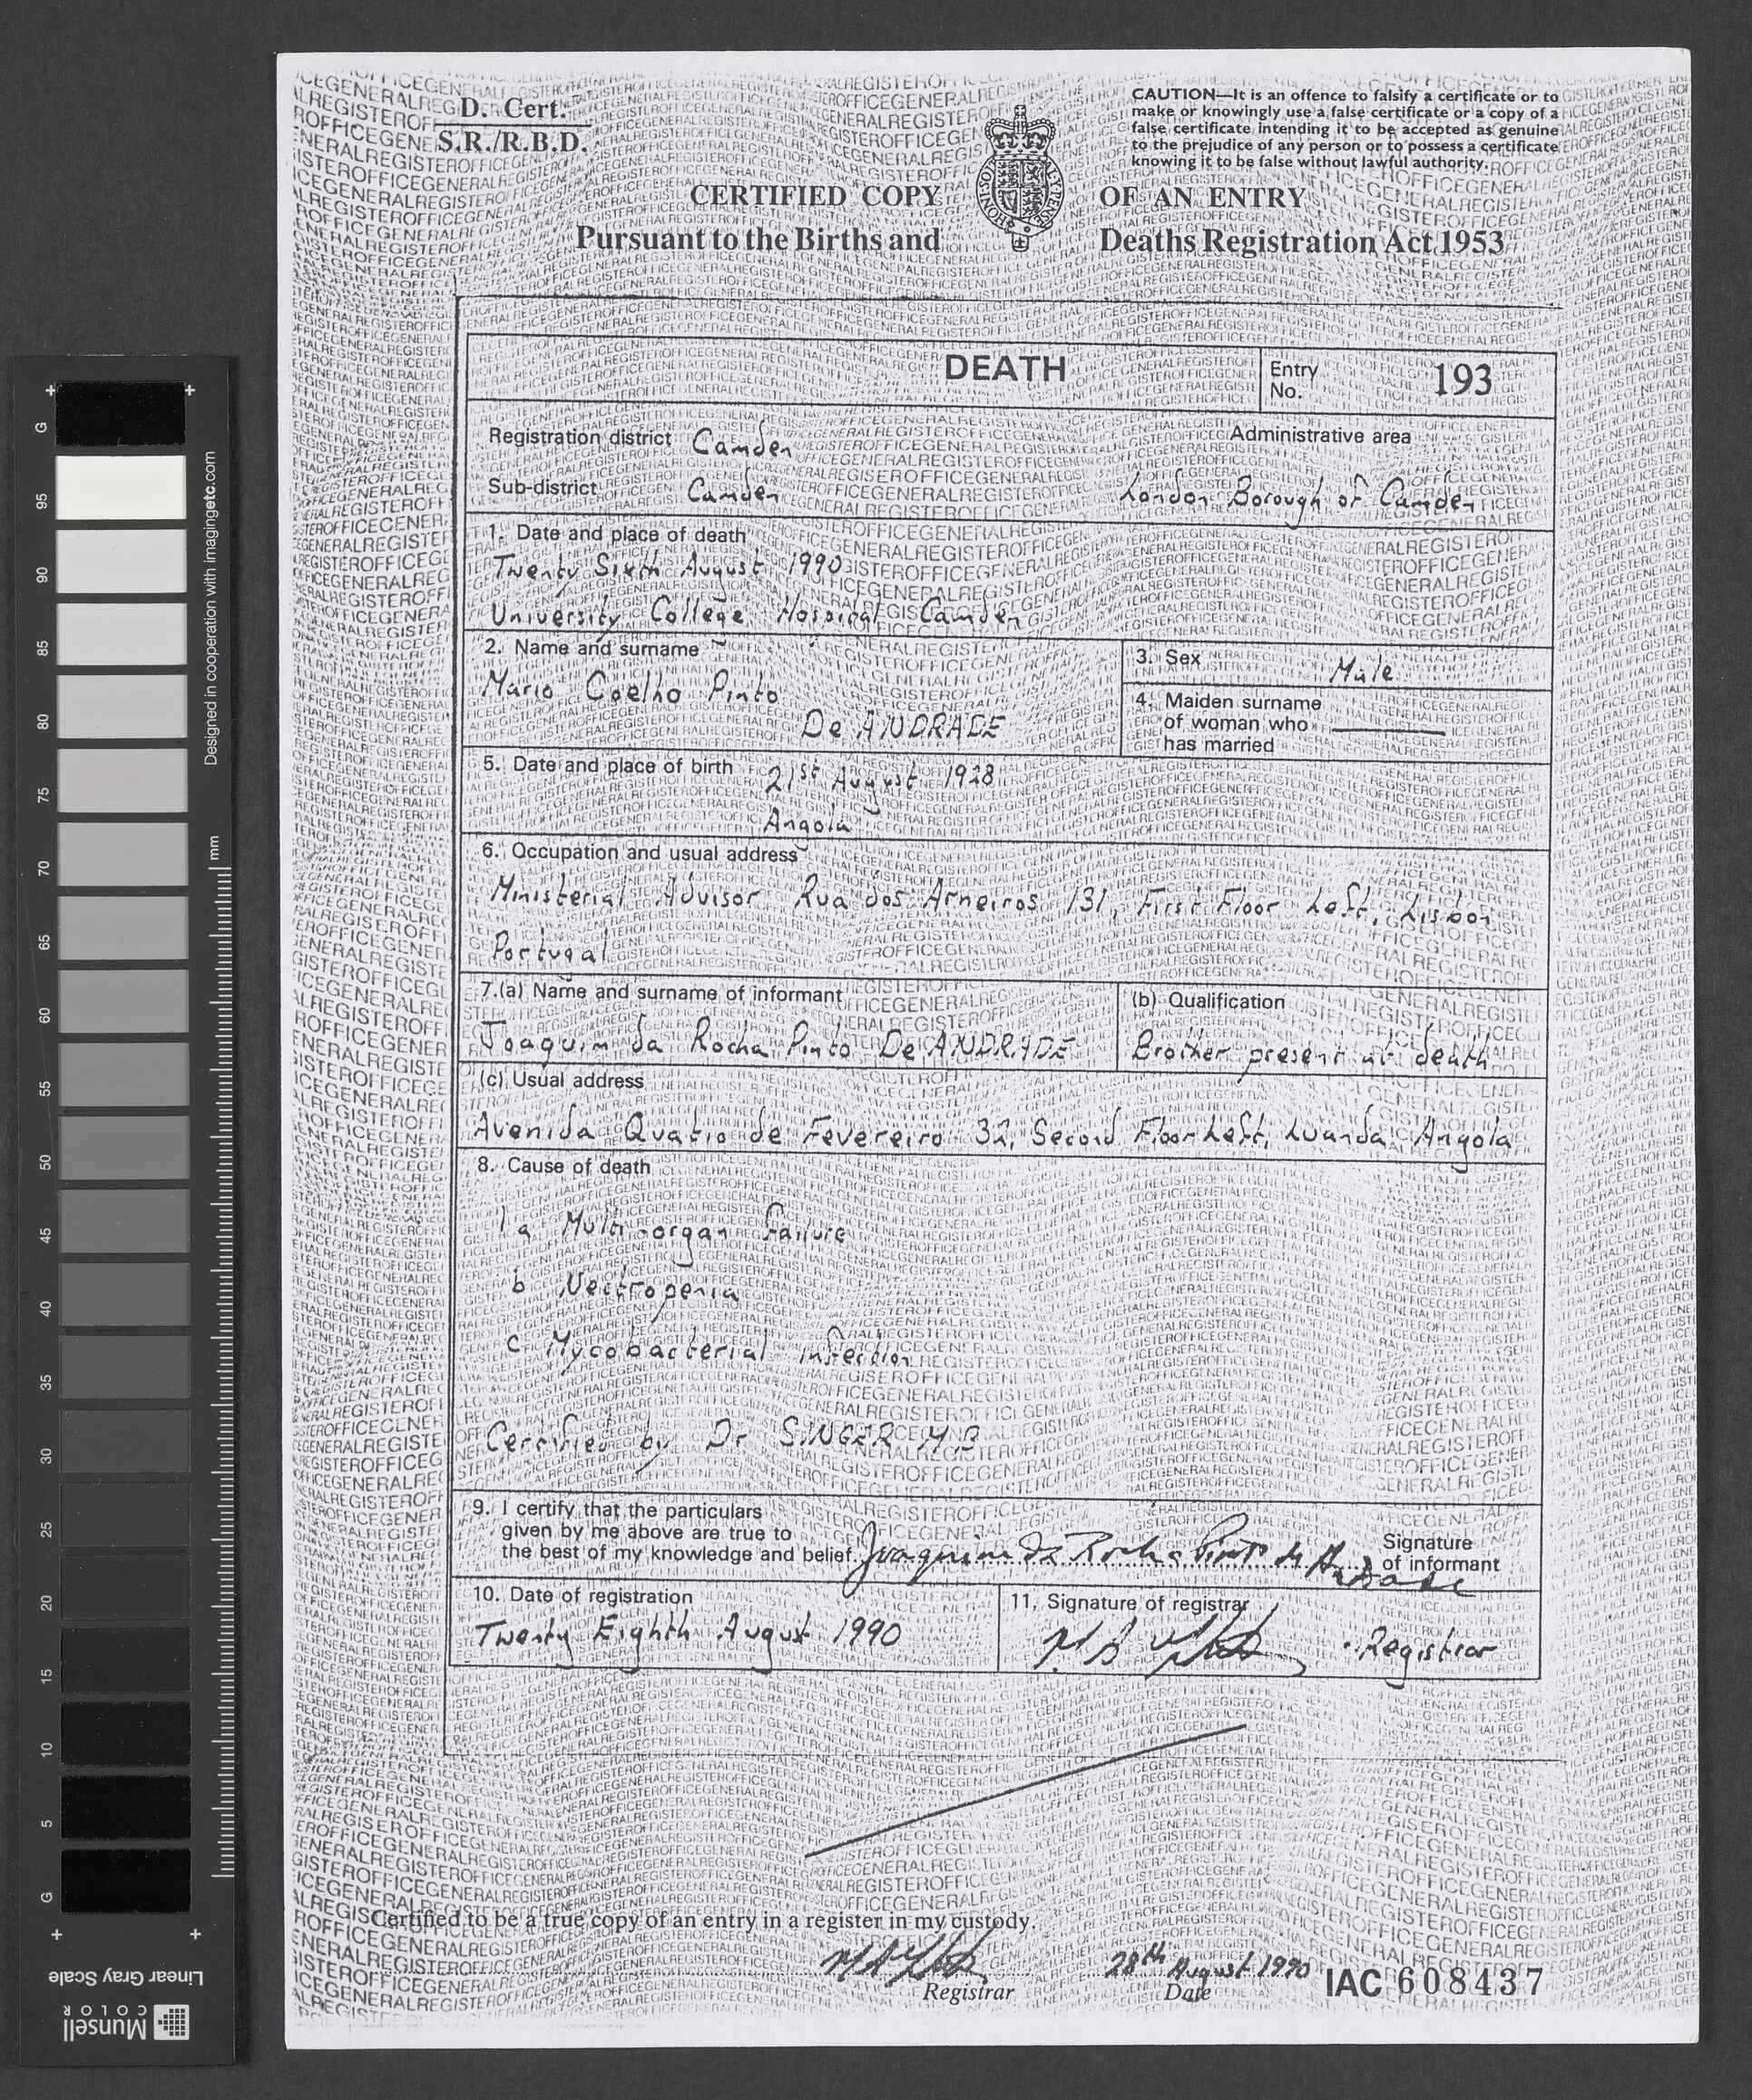 D. Cert.
S.R./R.B.D.
CAUTION—It is an offence to falsify a certificate or to
make or knowingly use a false certificate or a copy of a
false certificate intending it to be accepted as genuine
to the prejudice of any person or to possess a certificate
knowing it to be false without lawful authority.
CERTIFIED COPY OF AN ENTRY
Pursuant to the Births and Deaths Registration Act 1953
DEATH
Entry No. 193
Registration district Camden
Administrative area
Sub-district Camden
London Borough of Camden
1. Date and place of death
Twenty Sixth August 1990
University College Hospital Camden
2. Name and surname
Mario Coelho Pinto
De ANDRADE
3. Sex Male
4. Maiden surname
of woman who
has married
5. Date and place of birth 21st August 1928
Angola
6. Occupation and usual address
Ministerial Advisor Rua dos Arneiros 131, First Floor Left, Lisbon
Portugal
7.(a) Name and surname of informant
Joaquim da Rocha Pinto De ANDRADE
(b) Qualification
Brother present at death
(c) Usual address
Avenida Quatro de Fevereiro 32, Second Floor Left, Luanda Angola
8. Cause of death
1 a Multi-organ Failure
b Neutropenia
c Mycobacterial infection
Certified by Dr SINGER MB
9. I certify that the particulars
given by me above are true to
the best of my knowledge and belief
Joaquim da Rocha Pinto de Andrade
Signature
of informant
10. Date of registration
Twenty Eighth August 1990
11. Signature of registrar
Registrar
Certified to be a true copy of an entry in a register in my custody.
Registrar
28th August 1990
Date
IAC 608437
G
95
90
85
80
75
70
65
60
55
50
45
40
35
30
25
20
15
10
5
G
mm
Designed in cooperation with imagingetc.com
Linear Gray Scale
Munsell
COLOR